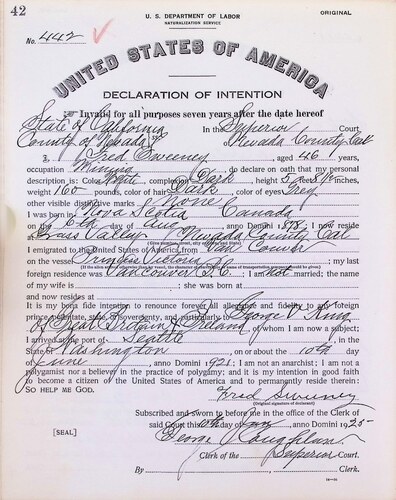 42
U. S. DEPARTMENT OF LABOR
NATURALIZATION SERVICE
ORIGINAL
No. 442
UNITED STATES OF AMERICA
DECLARATION OF INTENTION
Invalid for all purposes seven years after the date hereof
State of California
In the Superior Court,
County of Nevada
Nevada County Cal
I, Fred Sweeney, aged 46 years,
occupation Mining, do declare on oath that my personal
description is: Color White, complexion Dark, height 5 feet 8 inches,
weight 160 pounds, color of hair Dark, color of eyes Grey
other visible distinctive marks None
I was born in Nova Scotia Canada
on the day of Aug, anno Domini 1878; I now reside
at Grass Valley Nevada County Cal
I emigrated to the United States of America from Van Couver
on the vessel Princess Victoria; my last
foreign residence was Vancouver B.C.; I am not married; the name
of my wife is ; she was born at
and now resides at
It is my bona fide intention to renounce forever all allegiance and fidelity to any foreign
prince, potentate, state, or sovereignty, and particularly to George V King
of Great Britain & Ireland, of whom I am now a subject;
I arrived at the port of Seattle, in the
State of Washington, on or about the 10th day
of June, anno Domini 1921; I am not an anarchist; I am not a
polygamist nor a believer in the practice of polygamy; and it is my intention in good faith
to become a citizen of the United States of America and to permanently reside therein:
SO HELP ME GOD.
Fred Sweeney
(Original signature of declarant)
Subscribed and sworn to before me in the office of the Clerk of
said Court this day of, anno Domini 1925
[SEAL]
George Coughlan
Clerk of the Superior Court.
By, Clerk.